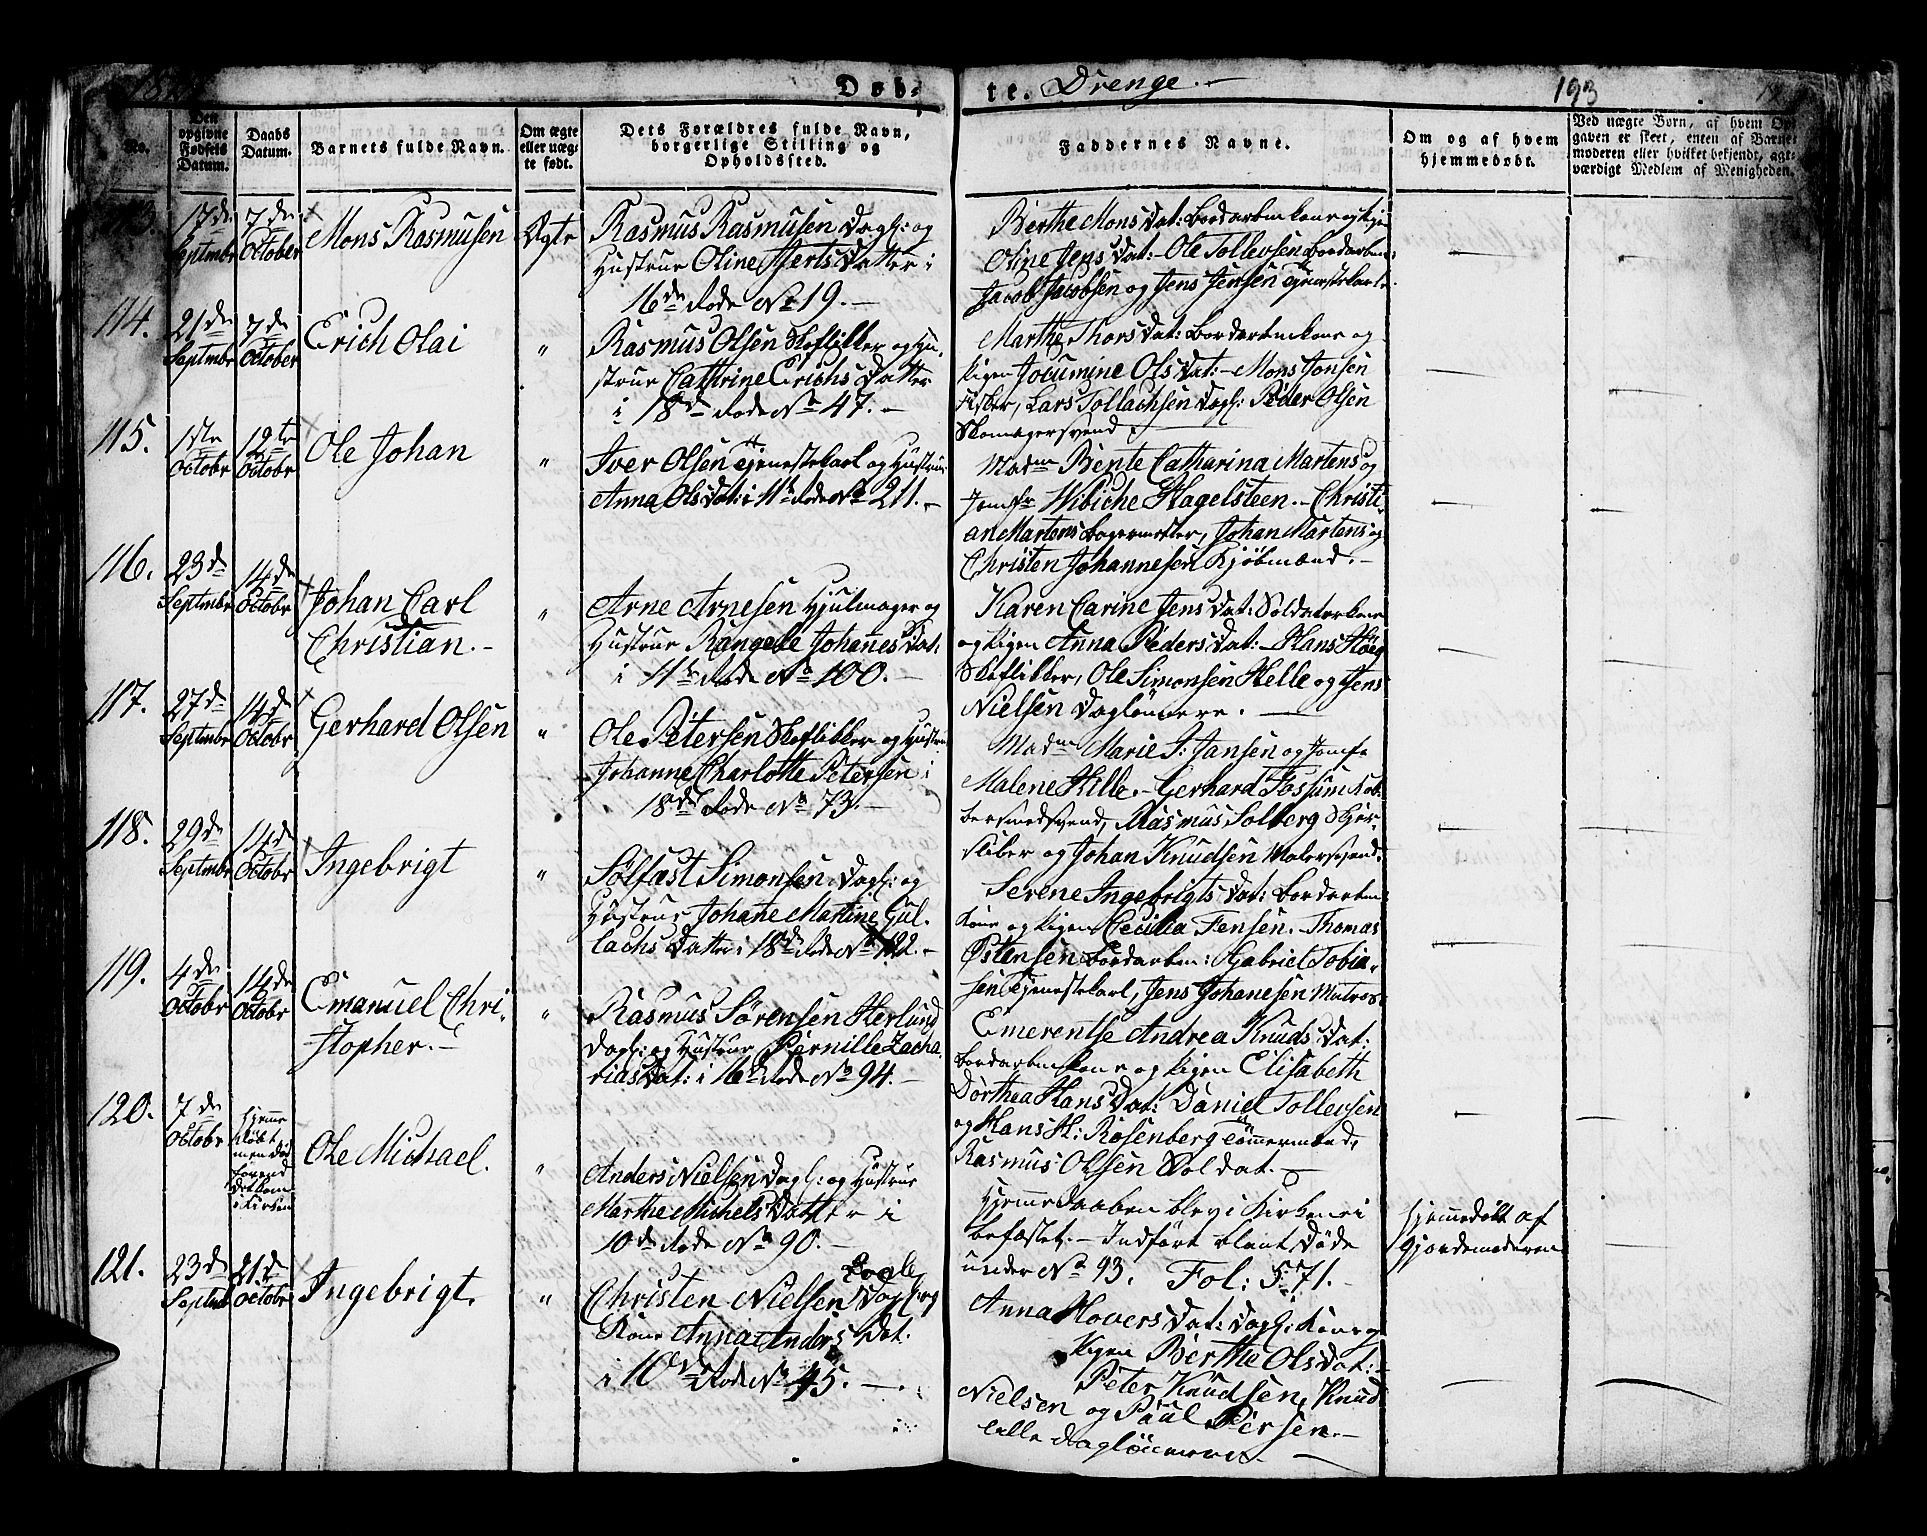 Døb-
te. Drenge. -
193
No.
Den
opgivne
Fødsels
Datum.
Daabs
Datum.
Barnets fulde Navn.
Om ægte
eller uæg-
te født.
Dets Forældres fulde Navn,
borgerlige Stilling og
Opholdssted.
Faddernes Navne.
Om og af hvem
hjemmedøbt.
Ved uægte Børn, af hvem Op-
gaven er skeet, enten af Barne-
moderen eller hvilket bekjendt, agt-
værdigt Medlem af Menigheden.
113.
17de
Septmbr
7de
October
Mons Rasmusen
Ægte
Rasmus Rasmusen Dagl: og
Hustrue Oline Hjerts Datter i
16de Rode No 19. -
Berthe Mons Dat: Bordarbm kone
Oline Jens Dat: - Ole Tollevsen Bordarbm:
Jacob Jacobsen og Jens Jensen Tjenestekarle.
114.
21de
Septmbr
7de
October
Erich Olai
"
Rasmus Olsen Skoflikker og Hu-
strue Cathrine Erichs Datter
i 18de Rode No 47. -
Marthe Thors Dat: Bordarbm kone og
Pigen Jocumine Ols Dat: - Mons Jonsen
Fisker, Lars Tollachsen Dagl: Peder Olsen
Skomagersvend
115.
1ste
Octobr
12te
Octobr
Ole Johan
"
Iver Olsen Tjenestekarl og Hustrue
Anna Ols Dat: i 11te Rode No 211. -
Madme Bente Catharina Martens og
Jomfr Wibiche Hagelsteen. - Christi-
an Martens Bagermester, Johan Martens og
Christen Johannesen Kjøbmænd. -
116.
23de
Septmbr
14de
Octobr
Johan Carl
Christian. -
"
Arne Arnesen Hjulmager og
Hustrue Rangele Johannes Dat:
i 11te Rode No 100. -
Karen Carine Jens Dat: Soldaterkone
og Pigen Anna Peders Dat: - Hans Høeg
Skoflikker, Ole Simonsen Helle og Jens
Nielsen Daglønnere. -
117.
27de
Septmbr
14de
Octobr
Gerhard Olsen
"
Ole Petersen Skoflikker og Hustrue
Johanne Charlotte Petersen i
18de Rode No 73. -
Madme Marie J: Jansen og Jomfr
Malene Hille. - Gerhard Fossum Kob-
bersmedsvend, Rasmus Solberg
og Johan Knudsen Malersvend.
118.
29de
Septmbr
14de
Octobr
Ingebrigt
"
Sølfæst Simonsen Dagl: og
Hustrue Johane Martine Gul-
lachs Datter i 18de Rode No 122. -
Serene Ingebrigts Dat: Bordarbm
kone og Pigen Cecilia Jensen. Thomas
Østensen Bordarbm: Gabriel Tobia-
sen Tjenestekarl, Jens Johanesen Matros.
119.
4de
Octobr
14de
Octobr
Emanuel Chri-
stopher. -
"
Rasmus Sørensen Herlund
Dagl: og Hustrue Pernille Zacha-
rias Dat: i 16de Rode No 94. -
Emerentse Andrea Knuds Dat:
Bordarbm kone og Pigen Elisabeth
Dorthea Hans Dat: Daniel Tollevsen
og Hans H: Rosenberg Tømmermænd,
Rasmus Olsen Soldat. -
120.
7de
Octobr
hjemme
døbt
men død
forend
det kom
i Kirken
Ole Michael.
"
Anders Nielsen Dagl: og Hustrue
Marthe Michels Datter i
10de Rode No 90. -
Hjemmedaaben blev i Kirken ei
befæstet. - Indført blant Døde
under No 93. Fol: 571. -
hjemmedøbt af
Gjordemoderen
121.
23de
Septmbr
21de
Octobr
Ingebrigt.
"
Christen Nielsen Dagl: og
Kone Anna Anders Dat:
i 10de Rode No 45. -
Anna Hovers Dat: Dagl: Kone og
Pigen Berthe Ols Dat: -
Peter Knudsen, Knud
Nielsen og Paul Persen. -
alle dagløннere.